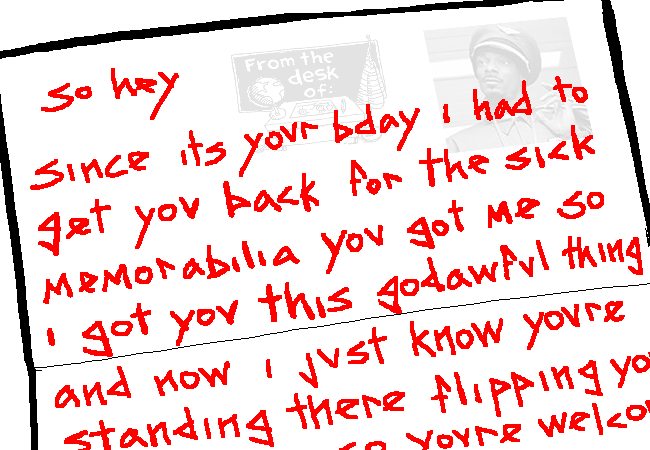 From the
desk
of:
so hey
since its your bday i had to
get you back for the sick
memorabilia you got me so
i got you this godawful thing
and now i just know youre
standing there flipping
so youre